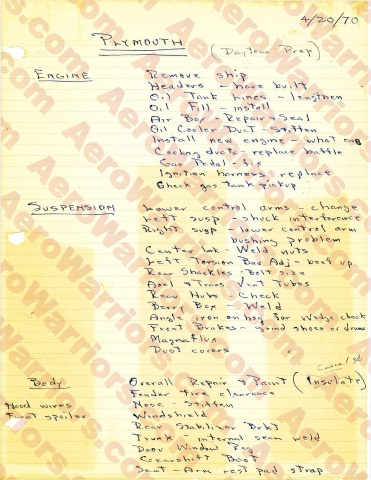 4/20/70
PLYMOUTH (Daytona Prep)
ENGINE Remove ship
Headers - have built
Oil Tank Lines - lengthen
Oil Fill - install
Air Box - Repair & Seal
Oil Cooler Duct - Stiffen
Install new engine - what one
Cooling ducts - replace battle
Gas Pedal - fix
Ignition harness, replace
Check gas tank pickup
SUSPENSION Lower control arms - change
Left susp - shock interference
Right susp - lower control arm
bushing problem
Center link - Weld nuts
Left Torsion Bar Adj - beef up
Rear Shackles - Bolt size
Axel & Trans Vent Tubes
Rear Hubs - Check
Berry Box - Weld
Angle iron on hsg for Wedge check
Front Brakes - grind shoes or drums
Magneflux
Dust covers
Body Overall Repair & Paint (Insulate)
Fender tire clearance
Hood wires Nose - Stiffen
Front spoiler Windshield
Rear Stabilizer Brkt
Trunk - internal seam weld
Door Window Reg
Gearshift Boot
Seat - Arm rest pad strap
AeroWarriors.com